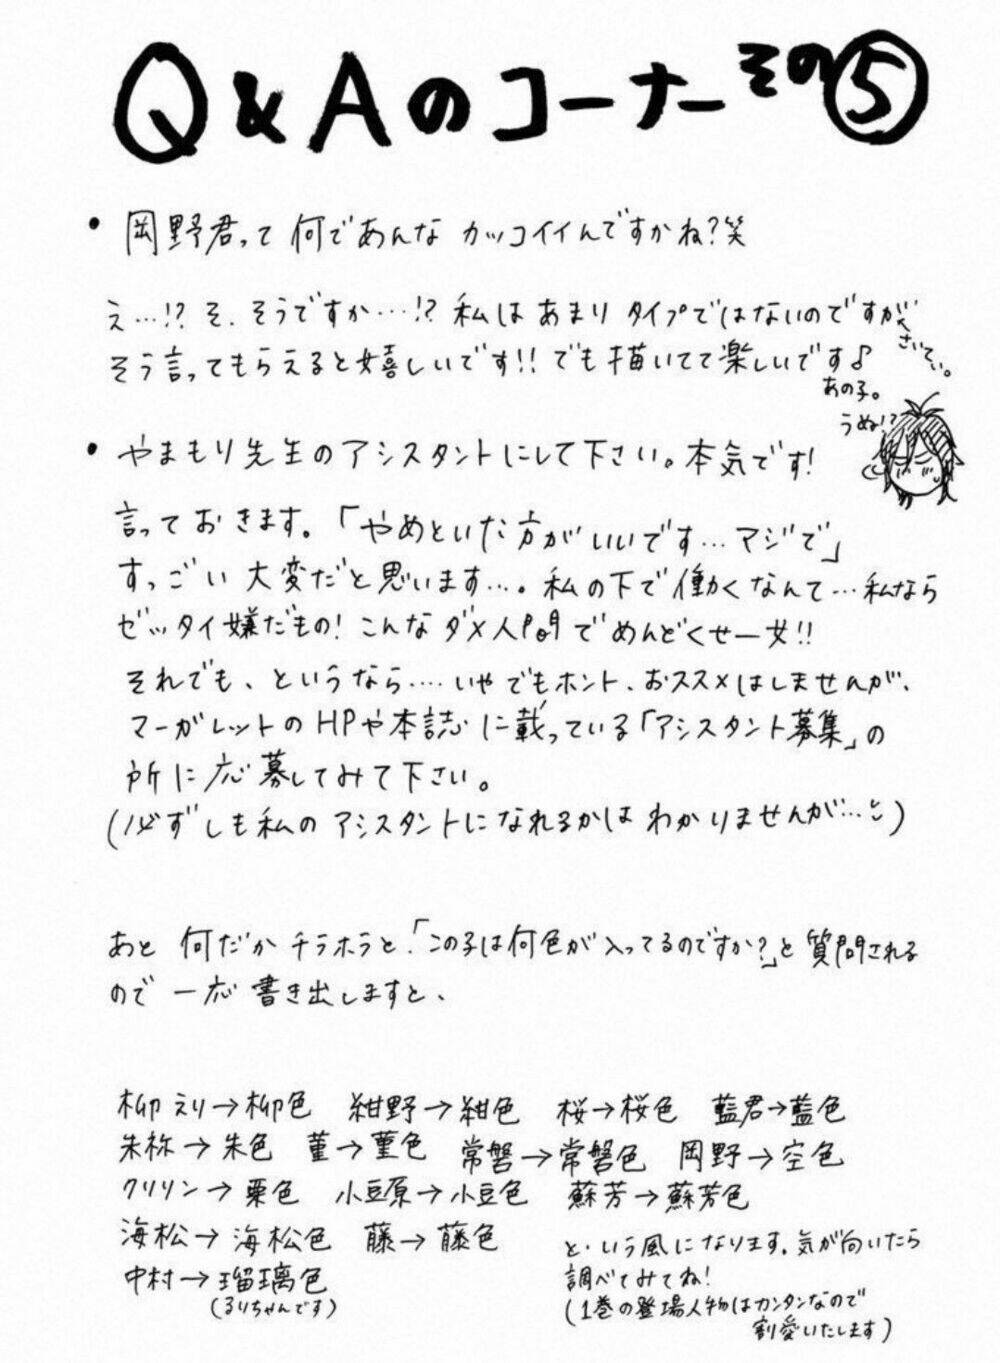 Q&Aのコーナーその⑤
・岡野君って何であんなカッコイイんですかね?笑
え…!? そ、そうですか…!? 私はあまりタイプではないのですが
そう言ってもらえると嬉しいです!! でも描いてて楽しいです♪
さいてい。
あの子。
うぬ!?
・やまもり先生のアシスタントにして下さい。本気です!
言っておきます。「やめといた方がいいです…マジで」
すっごい大変だと思います…。私の下で働くなんて…私なら
ゼッタイ嫌だもの! こんなダメ人間でめんどくせー女!!
それでも、というなら…. いやでもホント、おススメはしませんが、
マーガレットのHPや本誌に載っている「アシスタント募集」の
所に応募してみて下さい。
(必ずしも私のアシスタントになれるかはわかりませんが…)
あと何だかチラホラと、「この子は何色が入ってるのですか?」と質問される
ので一応書き出しますと、
柳えり→柳色 紺野→紺色 桜→桜色 藍君→藍色
朱祢→朱色 菫→菫色 常磐→常磐色 岡野→空色
クリリン→栗色 小豆原→小豆色 蘇芳→蘇芳色
海松→海松色 藤→藤色
中村→瑠璃色
(るりちゃんです)
と、いう風になります。気が向いたら
調べてみてね!
(1巻の登場人物はカンタンなので
割愛いたします)